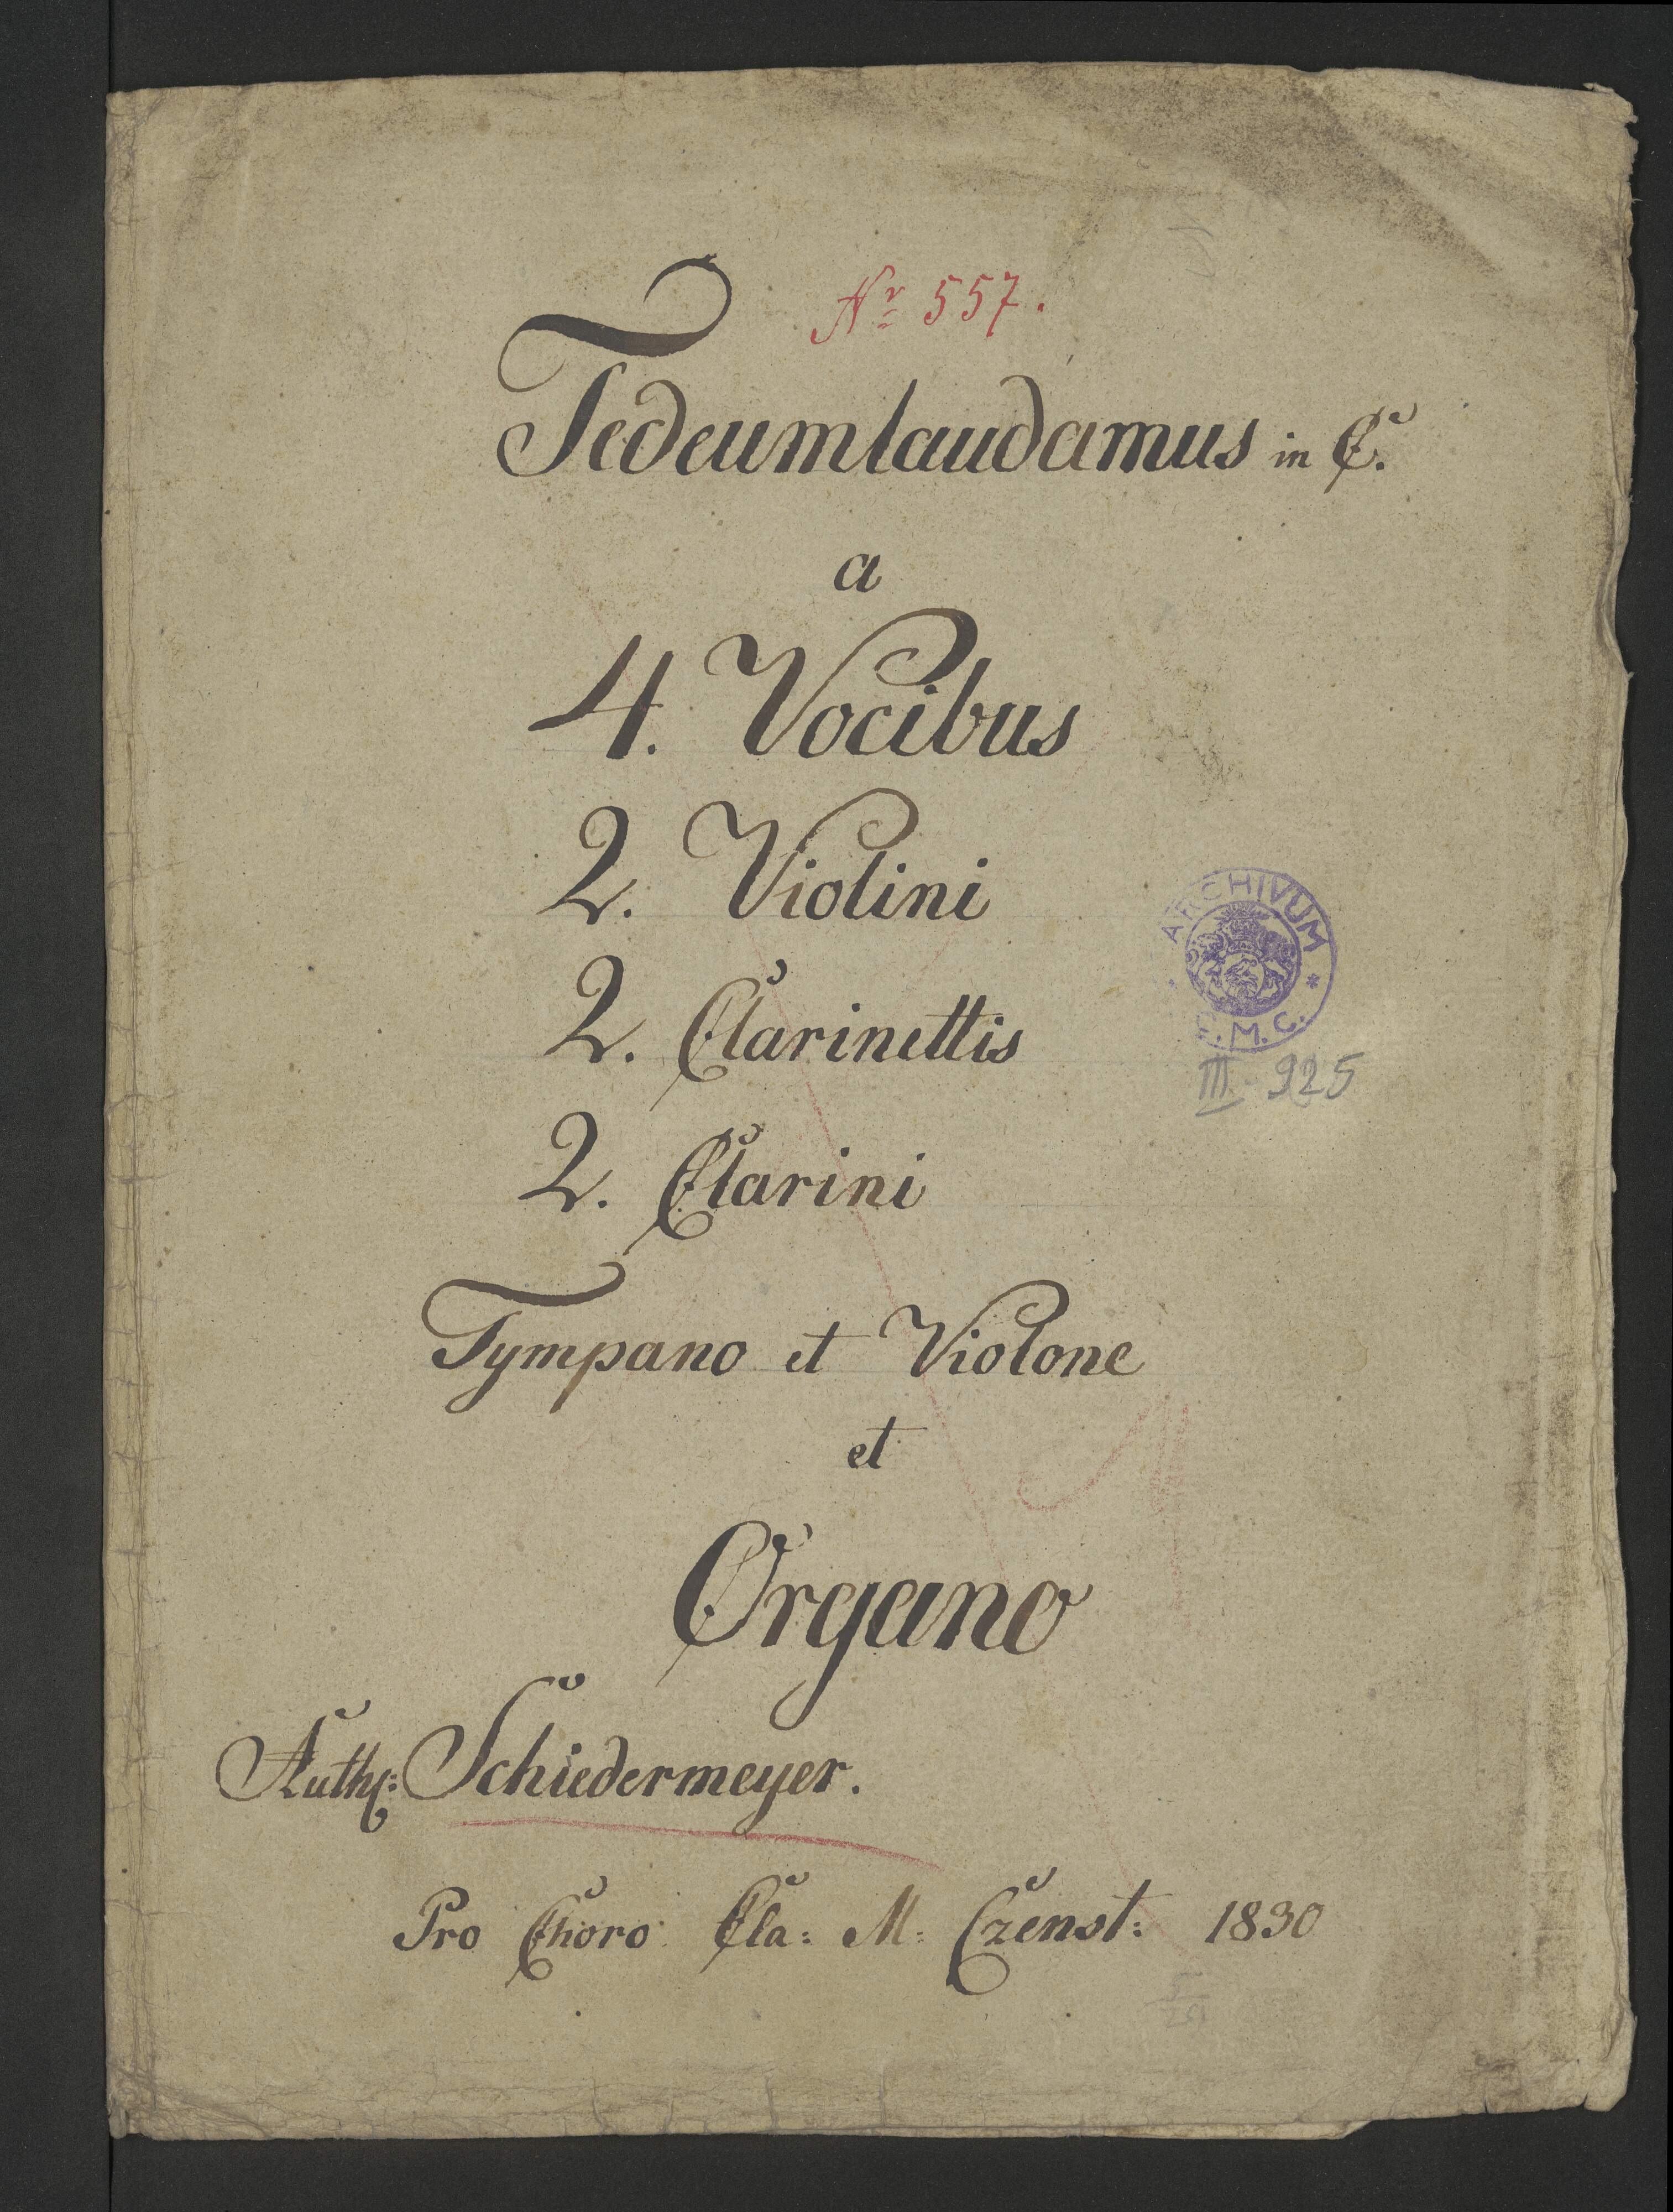 Nr 557.
Tedeumlaudamus in C.
a
4. Vocibus
2. Violini
2. Clarinettis
2. Clarini
ARCHIVUM
C.M.C.
III. 925
Tympano et Violone
et
Organo
Auth: Schiedermeyer.
Pro Choro Cla: M: Czenst: 1830